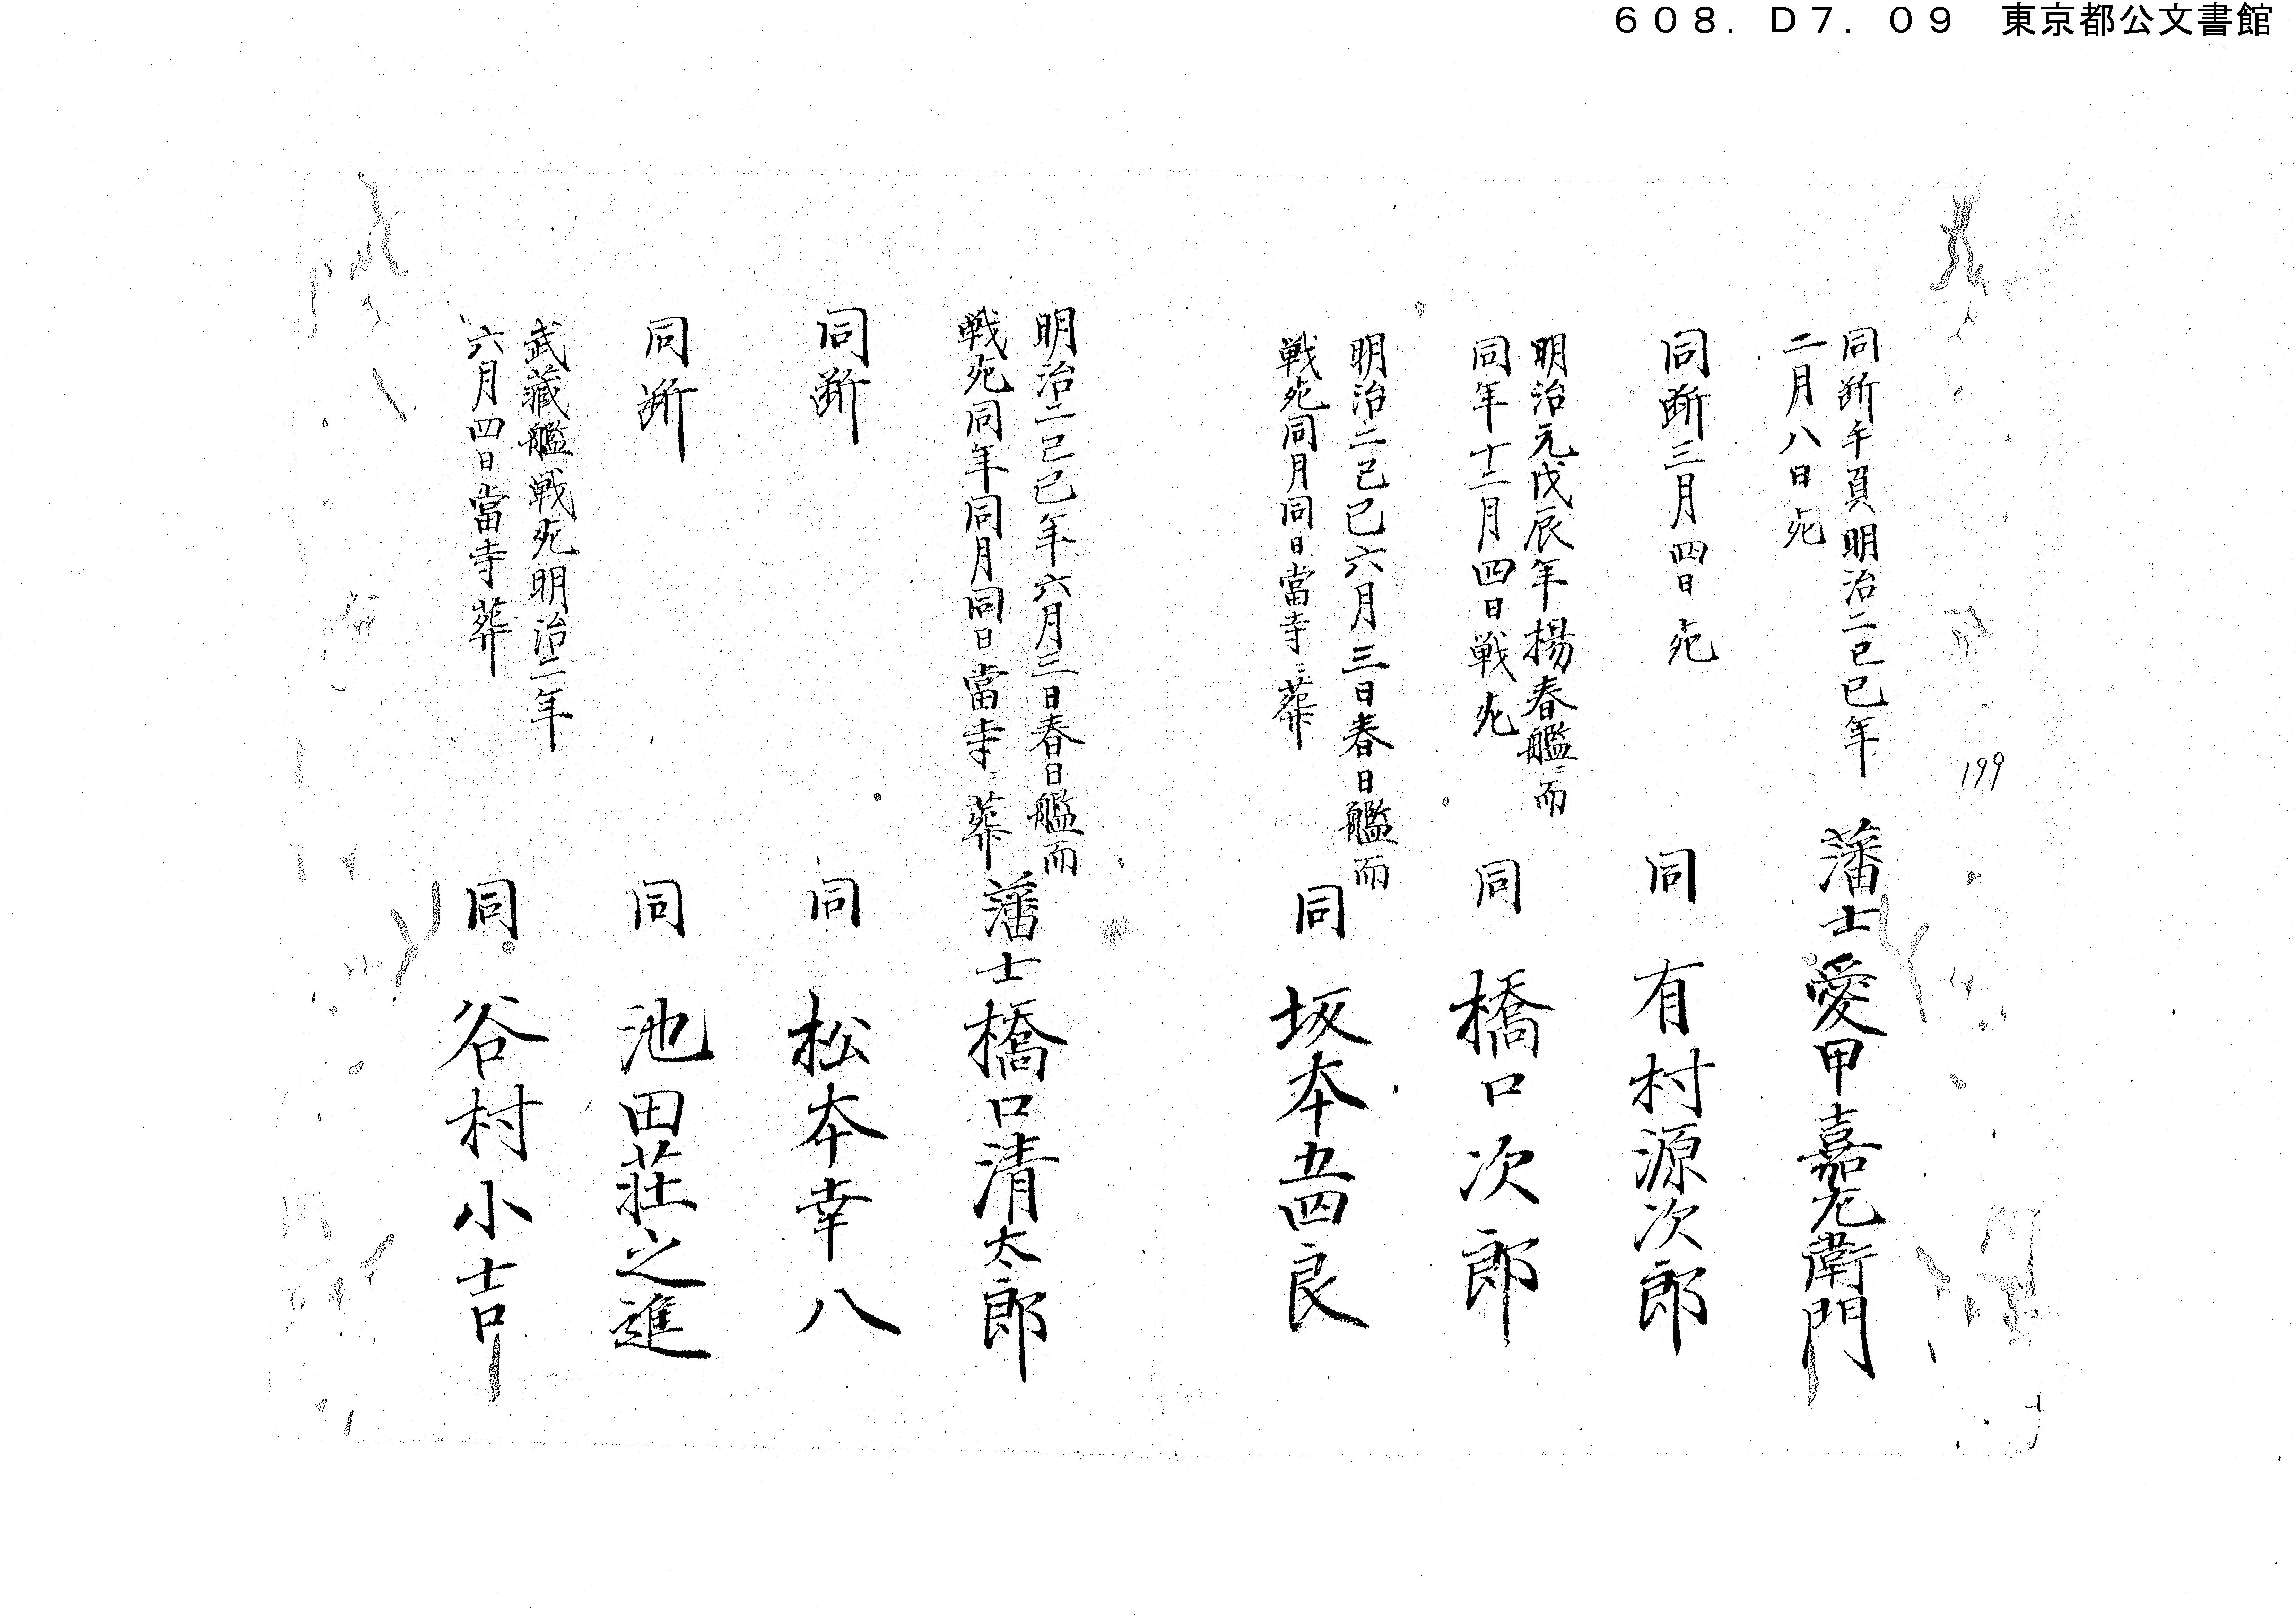 ６０８．Ｄ７．０９　東京都公文書館
199
同断手負明治二己巳年
二月八日死
藩士愛甲嘉左衛門
同断三月四日死
同　有村源次郎
明治元戊辰年揚春艦ニ而
同年十二月四日戦死
同　橋口次郎
明治二己巳六月三日春日艦而
戦死同月同日當寺ニ葬
同　坂本五四良
明治二己巳年六月三日春日艦而
戦死同年同月同日當寺ニ葬
藩士橋口清太郎
同断
同　松本幸八
同断
同　池田荘之進
武藏艦戦死明治二年
六月四日當寺葬
同　谷村小吉